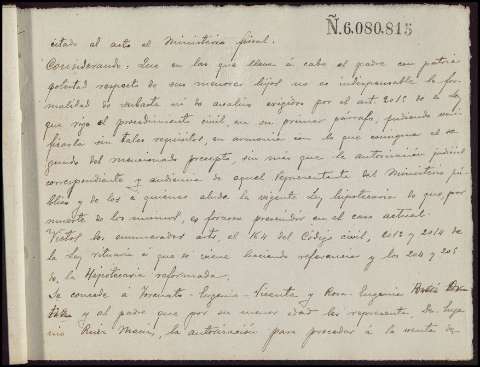 Ñ.6.080.815
citado al acto el Ministerio fiscal.
Considerando: Que en las que lleva á cabo el padre con patria
potestad respecto de sus menores hijos no es indispensable la for-
malidad de subasta ni de avalúo exigidos por el art. 2015 de la Ley
que rige el procedimiento civil, en su primer párrafo, pudiendo veri-
ficarse sin tales requisitos, en armonía con lo que consigna el se-
gundo del mencionado precepto sin más que la autorización judicial
correspondiente y audiencia de aquel representante del Ministerio pú-
blico y de los á quienes alude la vigente Ley hipotecaria de que, por
muerte de los mismos, es forzoso prescindir en el caso actual.
Vistos los enumerados arts, el 164 del Código civil, 2012 y 2014 de
la Ley rituaria á que se viene haciendo referencia y los 204 y 205
de la Hipotecaria reformada.
Se concede á Torcuato-Eugenio-Vicenta y Rosa-Eugenia
y al padre que por su menor edad les representa, Dn Euge-
nio Ruiz, la autorización para proceder á la venta de